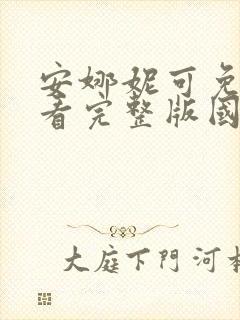 安娜妮可免
看完整版國
大庭下門河村